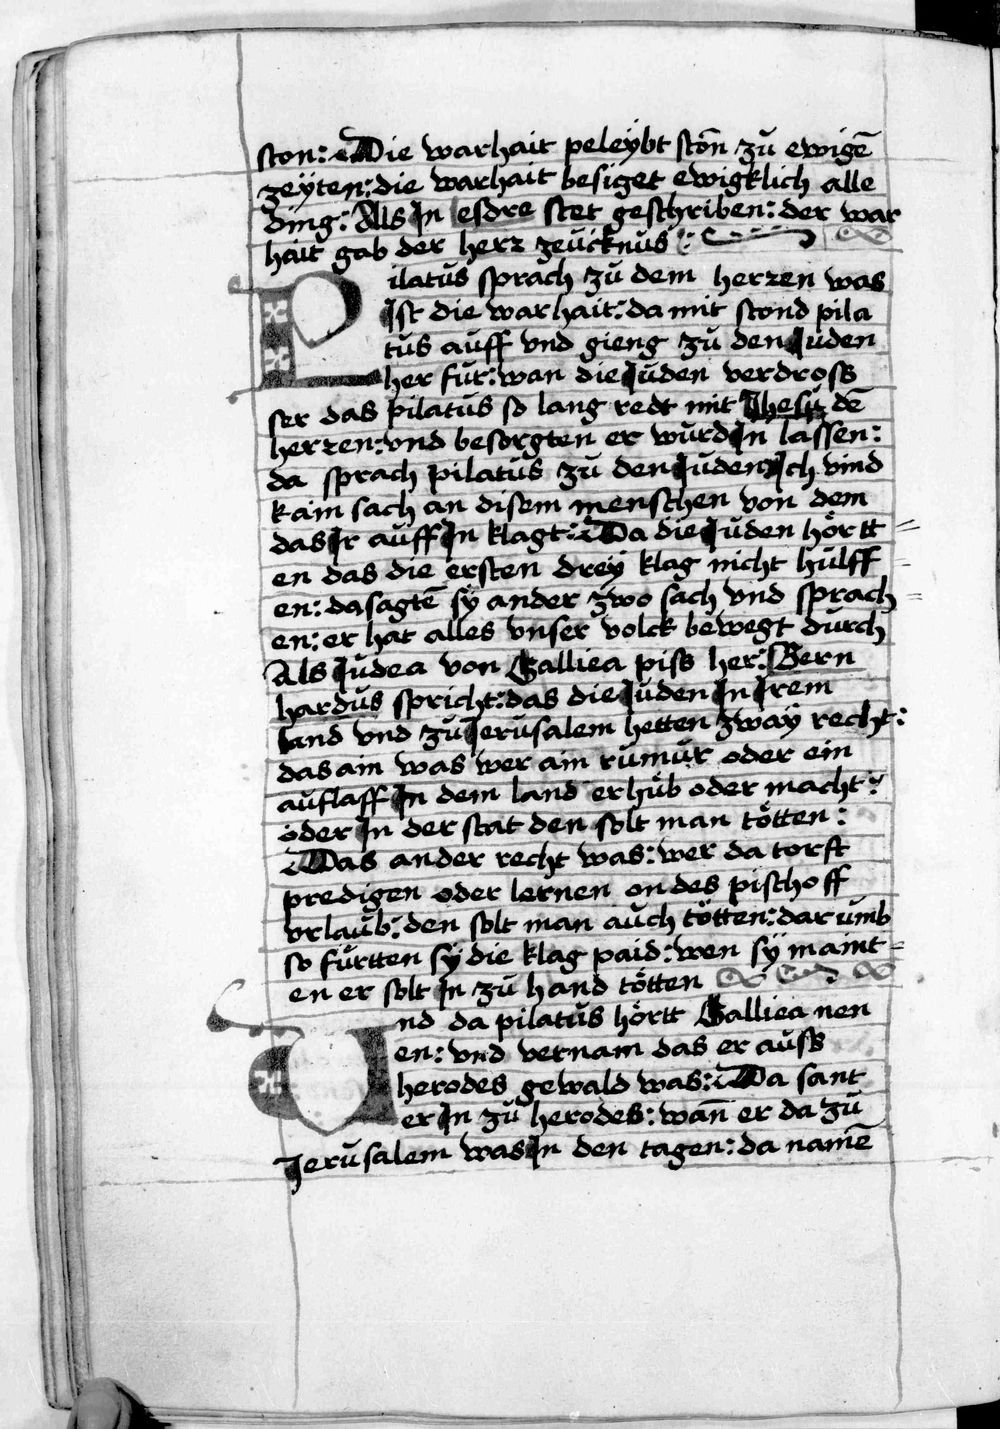 ston: Die warhait peleybt ston̄ zu̇ ewigē
zeyten: die warhait besiget ewigklich alle
ding: Als Jn esdre stet geschriben: der war
hait gab der herz zeu̇cknu̇s:
Pilatu̇s sprach zu̇ dem herzen was
Jst die warhait: da mit stond pila
tu̇s au̇ff vnd gieng zu̇ den Ju̇den
her fu̇r: wan die Ju̇den verdross
ser das pilatu̇s so lang redt mit Jhesu̇ dē
herzen: vnd besorgten er wu̇rd Jn lassen:
da sprach pilatu̇s zu̇ den Ju̇den Jch vind
kain sach an disem menschen von dem
das Jr au̇ff Jn klagt: Da die Ju̇den hörtt
en das die ersten drey klag nicht hu̇lff
en: da sagtē sÿ ander zwo sach vnd sprach
en: er hat alles vnser volck bewegt du̇rch
Als Ju̇dea von Galliea piss her: Bern
hardu̇s spricht: das die Ju̇den Jn Jrem
land vnd zu̇ Jeru̇salem hetten zwaÿ recht:
das ain was wer ain ru̇mu̇r oder ein
au̇flaff Jn dem land erhu̇b oder macht:
oder Jn der stat den solt man tötten:
Das ander recht was: wer da torst
predigen oder lernen on des pischoff
vrlau̇b: den solt man au̇ch tötten: dar u̇mb
so fu̇rtten sÿ die klag paid: wen sÿ maint
en er solt Jn zu̇ hand tötten
Vnd da pilatu̇s hörtt Galliea nen
en: vnd vernam das er au̇ss
herodes gewald was: Da sant
er Jn zu̇ herodes: wan̄ er da zu̇
Jeru̇salem was Jn den tagen: da namē